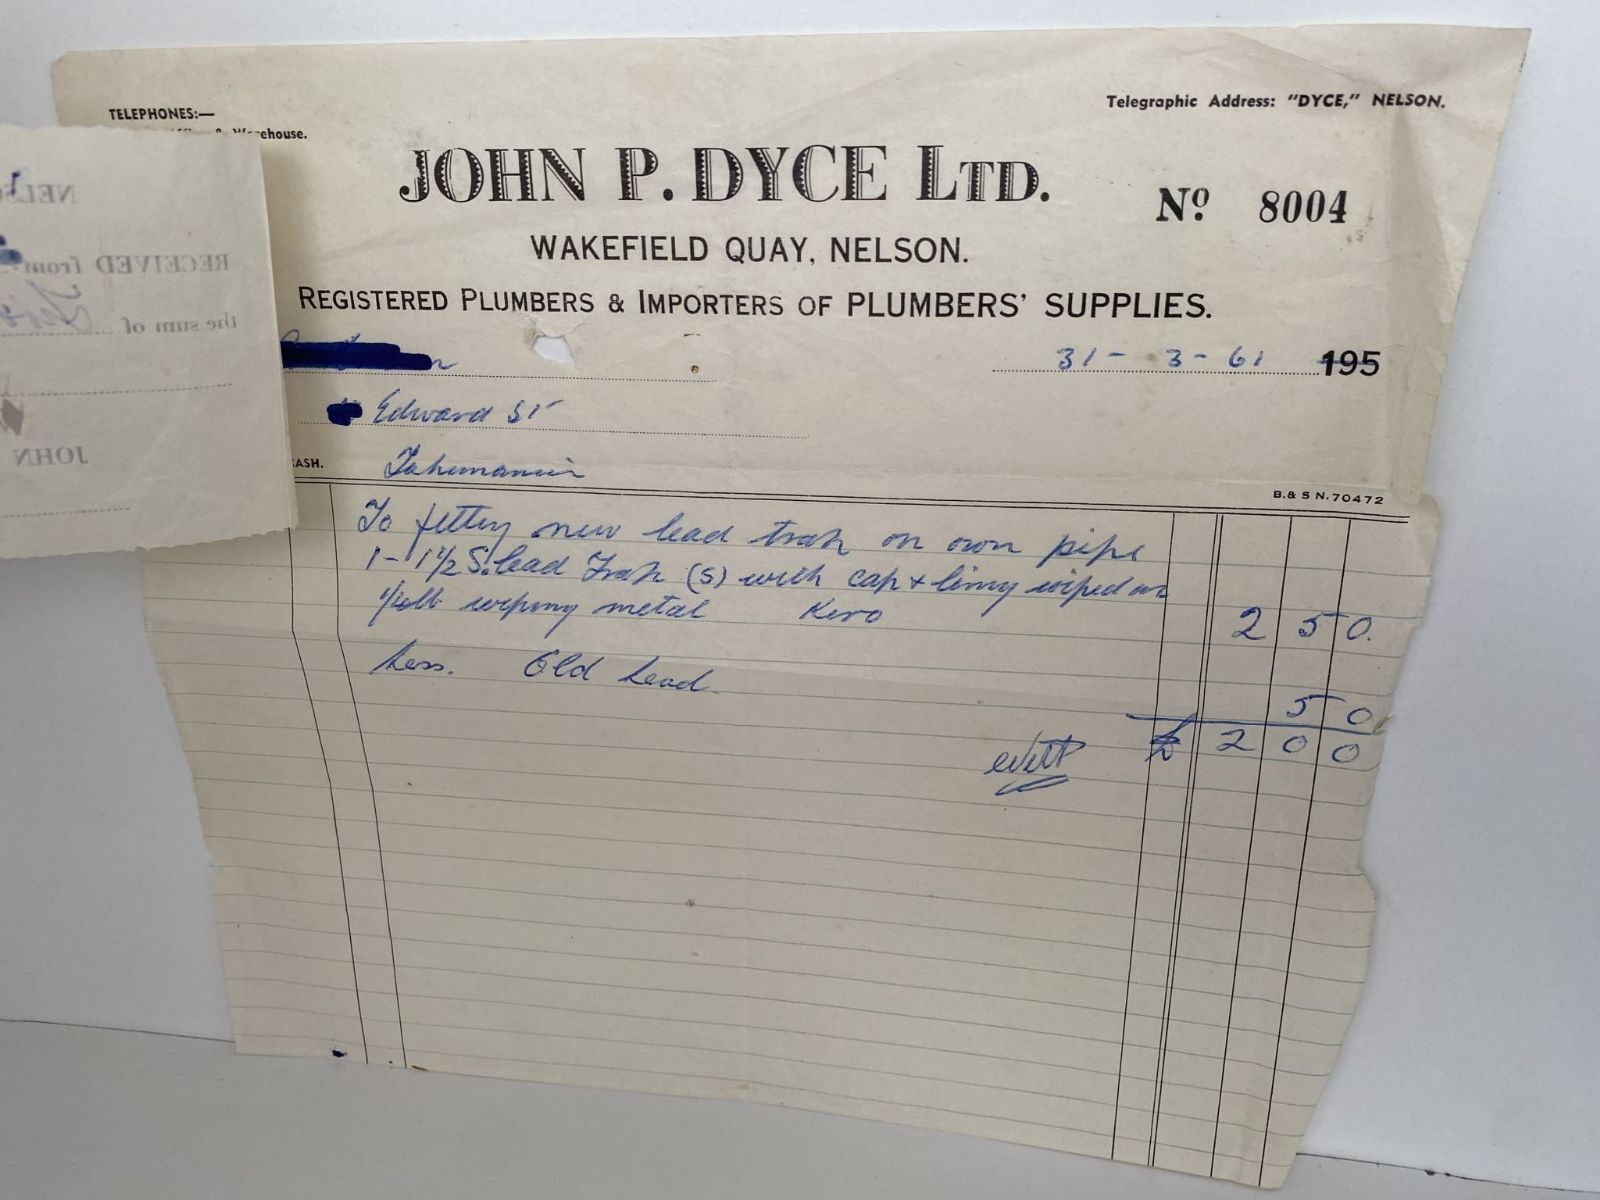 TELEPHONES:—
& Warehouse.
Telegraphic Address: "DYCE," NELSON.
JOHN P. DYCE LTD.
No 8004
WAKEFIELD QUAY, NELSON.
REGISTERED PLUMBERS & IMPORTERS OF PLUMBERS' SUPPLIES.
31 - 3 - 61 195
Edward St
Tahunanui
ASH.
B. & S N. 70472
To fitting new lead trap on own pipe
1 - 1 1/2 S. lead Trap (S) with cap & lining wiped on
wiping metal Kero 2 5 0.
Less. Old Lead 5 0
£ 2 0 0
NELSO
RECEIVED from
the sum of
JOHN